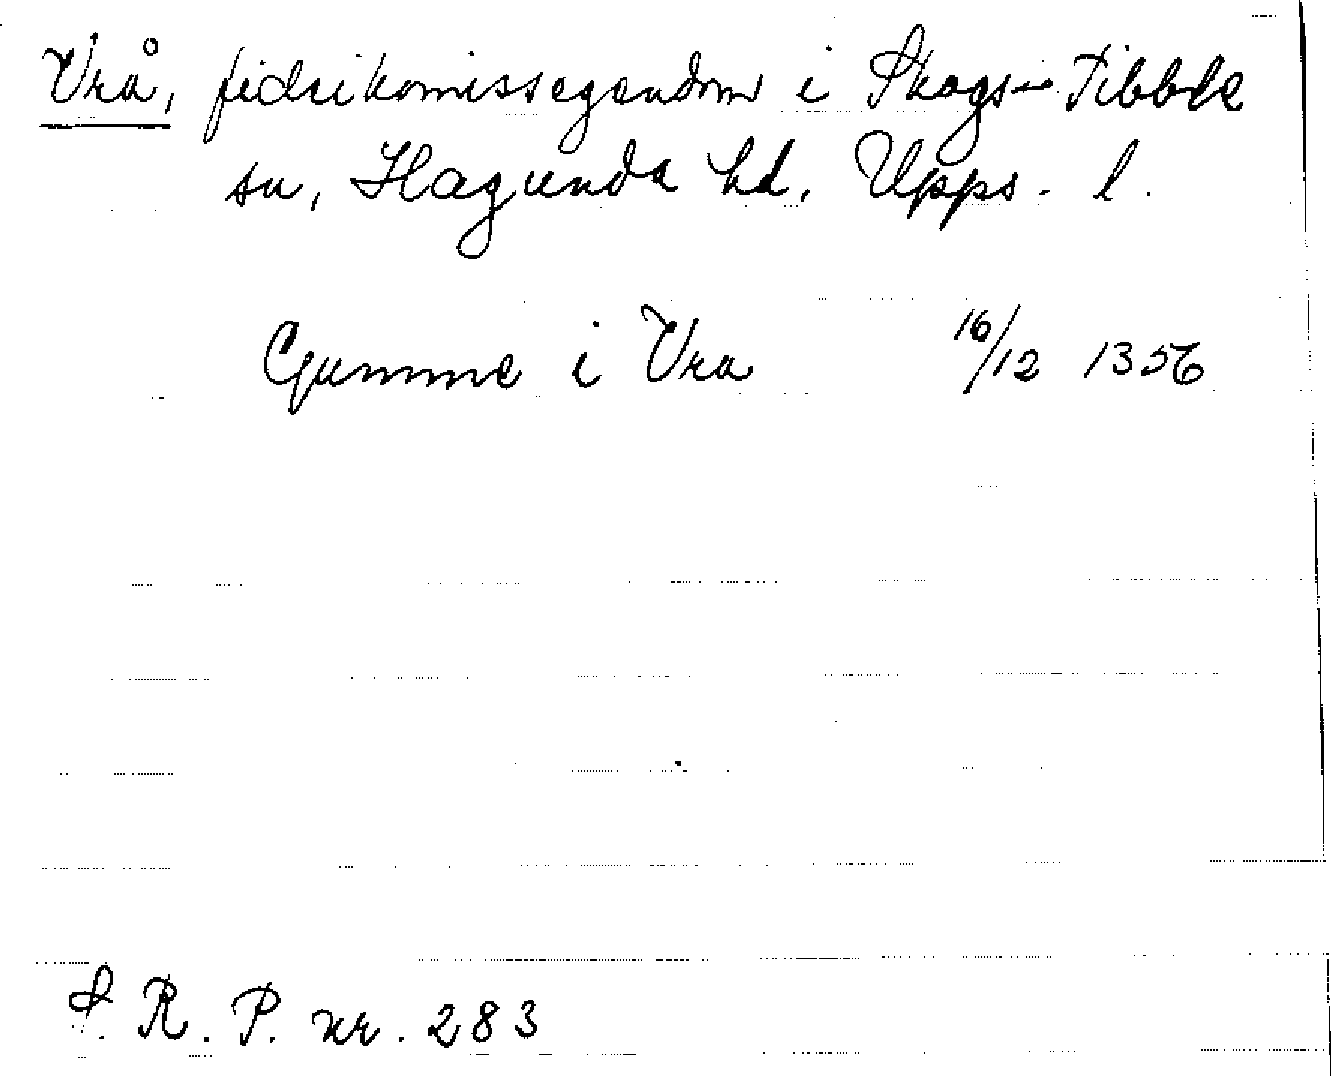 Vrå, fideikomissegendom i Skogs-Tibble
sn, Hagunda hd. Upps. l.
Gumme i Vra 16/12 1356
S. R. P. nr. 283